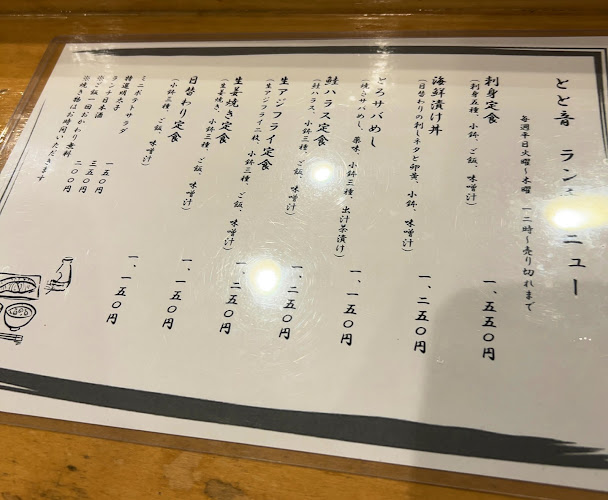 とと音 ラン ニュー
毎週平日火曜～木曜 一二時～売り切れまで
刺身定食 一、五五〇円
(刺身五種、小鉢、ご飯、味噌汁)
海鮮漬け丼 一、二五〇円
(日替わりの刺しネタと卵黄、小鉢、味噌汁)
とろサバめし 一、一五〇円
(焼きサバめし、薬味、小鉢三種、出汁茶漬け)
鮭ハラス定食 一、二五〇円
(鮭ハラス、小鉢三種、ご飯、味噌汁)
生アジフライ定食 一、二五〇円
(生アジフライ二枚、小鉢三種、ご飯、味噌汁)
生姜焼き定食 一、一五〇円
(生姜焼き、小鉢三種、ご飯、味噌汁)
日替わり定食 一、一五〇円
(小鉢三種、ご飯、味噌汁)
ミニポテトサラダ 一五〇円
特選明太子 三五〇円
ランチ日本酒 二〇〇円
※ご飯一回おかわり無料
※焼き物はお時間いただきます